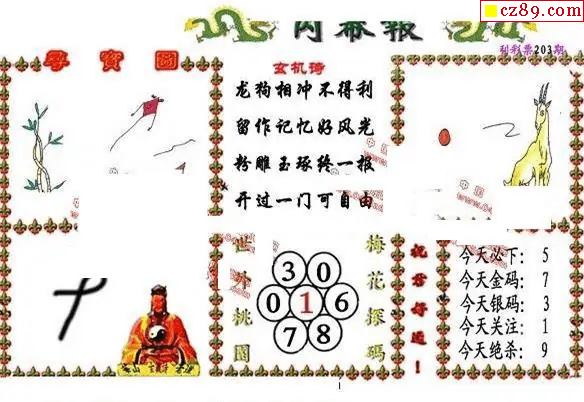 cz89.com
内幕报
利彩票203期
寻宝图
玄机诗
龙狗相冲不得利
留作记忆好风光
粉雕玉琢终一报
开过一门可自由
世外桃园
3 0
0 1 6
7 8
梅花探码
祝君好运!
今天必下: 5
今天金码: 7
今天银码: 3
今天关注: 1
今天绝杀: 9